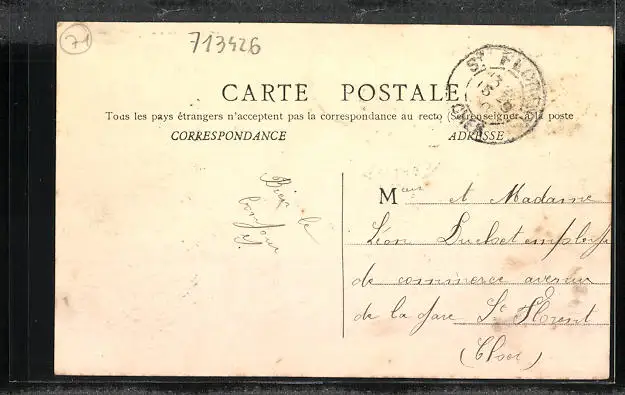 71
713426
CARTE POSTALE
Tous les pays étrangers n'acceptent pas la correspondance au recto (Se renseigner à la poste
CORRESPONDANCE
ADRESSE
ST FLORENT
CHER
Bien le
bonjour
M et Madame
Léon employé
de commerce avenue
de la gare St Florent
(Cher)